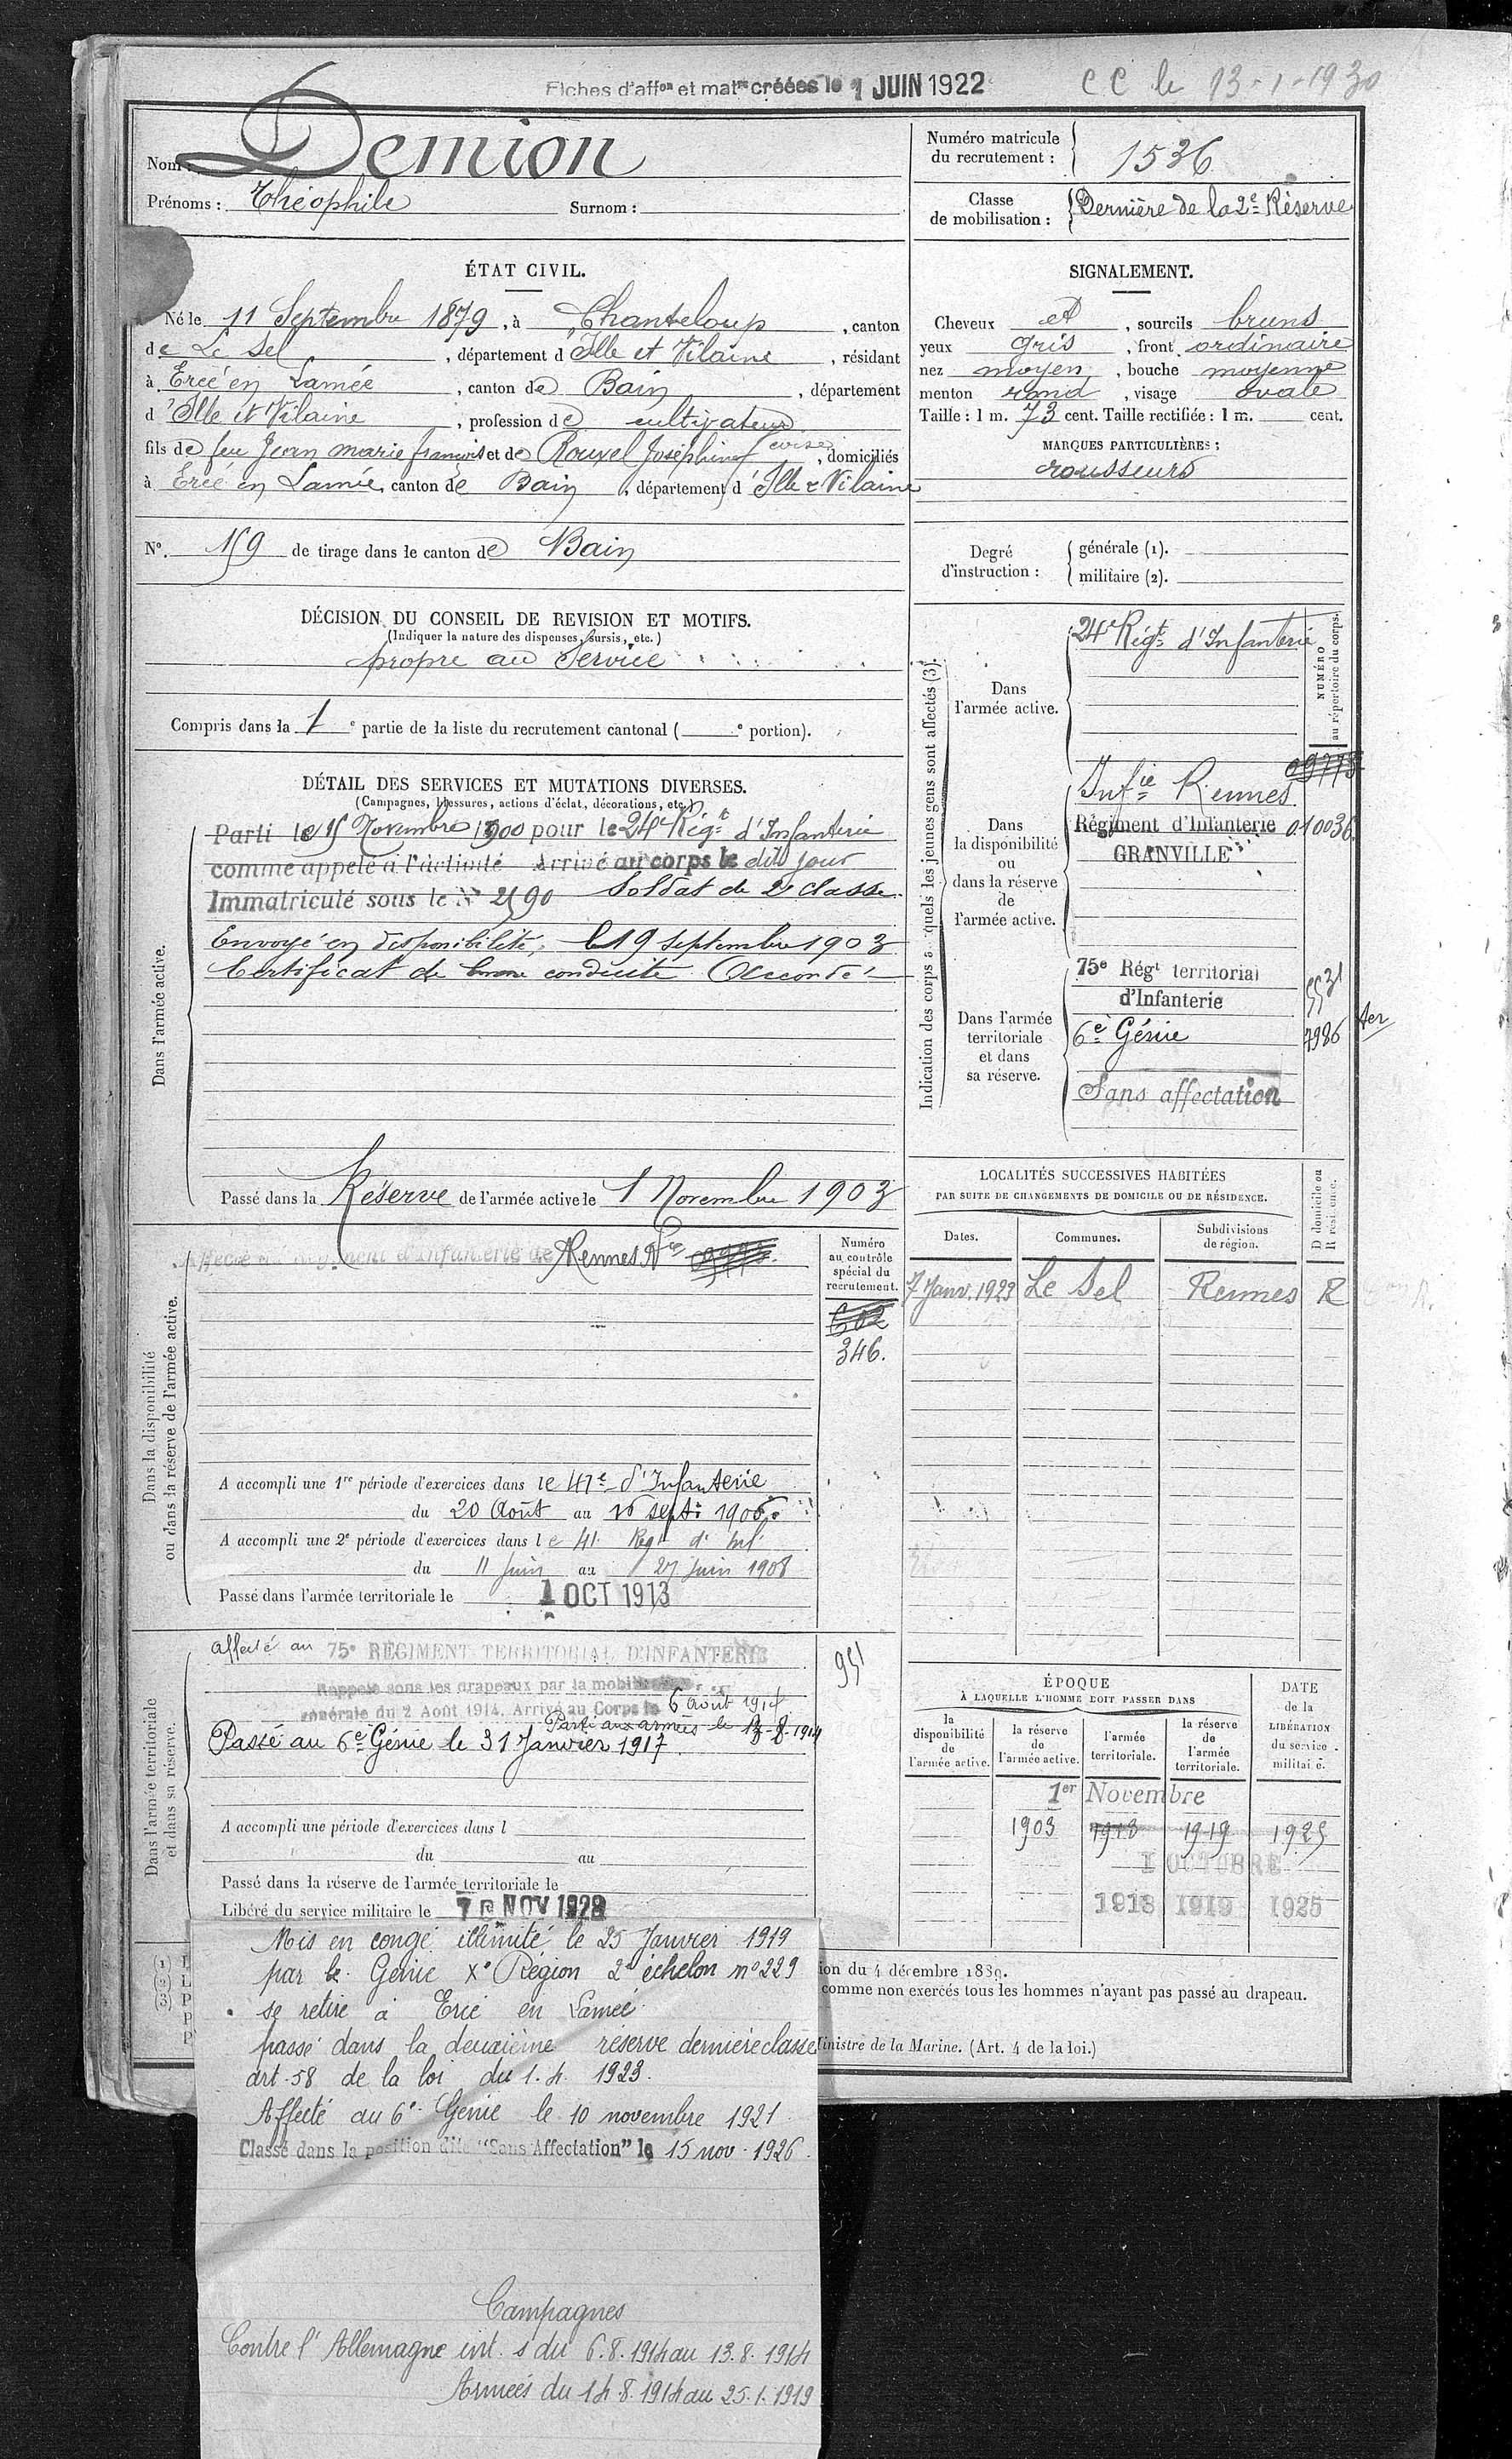 Fiches d'aff^on et mat^re créées le 1 JUIN 1922
CC le 13-1-1930
Nom : Demion
Prénoms : Théophile Surnom :
Numéro matricule du recrutement : 1536
Classe de mobilisation : Dernière de la 2e Réserve
ÉTAT CIVIL.
Né le 11 Septembre 1879, à Chanteloup, canton
de Le Sel, département d'Ille et Vilaine, résidant
à Ercé en Lamée, canton de Bain, département
d'Ille et Vilaine, profession de cultivateur
fils de feu Jean marie françois et de Rouxel Joséphine, domiciliés
à Ercé en Lamée, canton de Bain, département d'Ille & Vilaine
N°. 159 de tirage dans le canton de Bain
SIGNALEMENT.
Cheveux et, sourcils bruns
yeux gris, front ordinaire
nez moyen, bouche moyenne
menton rond, visage ovale
Taille : 1 m. 73 cent. Taille rectifiée : 1 m. cent.
MARQUES PARTICULIÈRES :
rousseurs
Degré d'instruction : générale (1).
militaire (2).
DÉCISION DU CONSEIL DE REVISION ET MOTIFS.
(Indiquer la nature des dispenses, sursis, etc.)
propre au Service
Compris dans la 1e partie de la liste du recrutement cantonal ( e portion).
DÉTAIL DES SERVICES ET MUTATIONS DIVERSES.
(Campagnes, blessures, actions d'éclat, décorations, etc.)
Dans l'armée active.
Parti le 15 Novembre 1900 pour le 24e Rég^t d'Infanterie
comme appelé à l'activité Arrivé au corps le dit jour
Immatriculé sous le N° 2590 Soldat de 2e classe.
Envoyé en disponibilité, le 19 septembre 1903
Certificat de bonne conduite Accordé
Passé dans la Réserve de l'armée active le 1 Novembre 1903
Indication des corps auxquels les jeunes gens sont affectés (3).
NUMÉRO au répertoire du corps.
Dans l'armée active.
24e Rég^t d'Infanterie
Dans la disponibilité ou dans la réserve de l'armée active.
Inf^ie Rennes 09773
Régiment d'Infanterie 010036
GRANVILLE
Dans l'armée territoriale et dans sa réserve.
75e Rég^t territorial
d'Infanterie 5531
6e Génie 7986 ter
Sans affectation
Dans la disponibilité ou dans la réserve de l'armée active.
Affecté au Régiment d'Infanterie de Rennes N° 09773
Numéro au contrôle spécial du recrutement.
602
346.
A accompli une 1re période d'exercices dans le 41e d'Infanterie
du 20 Août au 16 sept. 1906
A accompli une 2e période d'exercices dans le 41 Reg^t d'Inf^
du 11 Juin au 27 Juin 1908
Passé dans l'armée territoriale le 1 OCT 1913
LOCALITÉS SUCCESSIVES HABITÉES
PAR SUITE DE CHANGEMENTS DE DOMICILE OU DE RÉSIDENCE.
Dates. Communes. Subdivisions de région. D domicile ou R résidence.
7 Janv. 1923 Le Sel Rennes R
Dans l'armée territoriale et dans sa réserve.
affecté au 75e RÉGIMENT TERRITORIAL D'INFANTERIE
951
Rappelé sous les drapeaux par la mobilisation
générale du 2 Août 1914. Arrivé au Corps le 6 août 1914
Parti aux armées le 13-8-1914
Passé au 6e Génie le 31 Janvier 1917.
A accompli une période d'exercices dans l
du au
Passé dans la réserve de l'armée territoriale le
Libéré du service militaire le NOV 1928
ÉPOQUE
À LAQUELLE L'HOMME DOIT PASSER DANS
la disponibilité de l'armée active. la réserve de l'armée active. l'armée territoriale. la réserve de l'armée territoriale.
DATE de la LIBÉRATION du service militaire.
1er Novembre
1903 1913 1919 1925
1 OCTOBRE
1913 1919 1925
Mis en congé illimité le 25 Janvier 1919
par le Génie Xe Région 2e échelon n° 229
se retire à Ercé en Lamée
passé dans la deuxième réserve dernière classe
art. 58 de la loi du 1. 4. 1923.
Affecté au 6e Génie le 10 novembre 1921.
Classé dans la position dite "Sans Affectation" le 15 nov. 1926.
(1)
(2)
(3)
ion du 4 décembre 1889.
comme non exercés tous les hommes n'ayant pas passé au drapeau.
inistre de la Marine. (Art. 4 de la loi.)
Campagnes
Contre l'Allemagne int. s du 6. 8. 1914 au 13. 8. 1914
Armées du 14. 8. 1914 au 25. 1. 1919